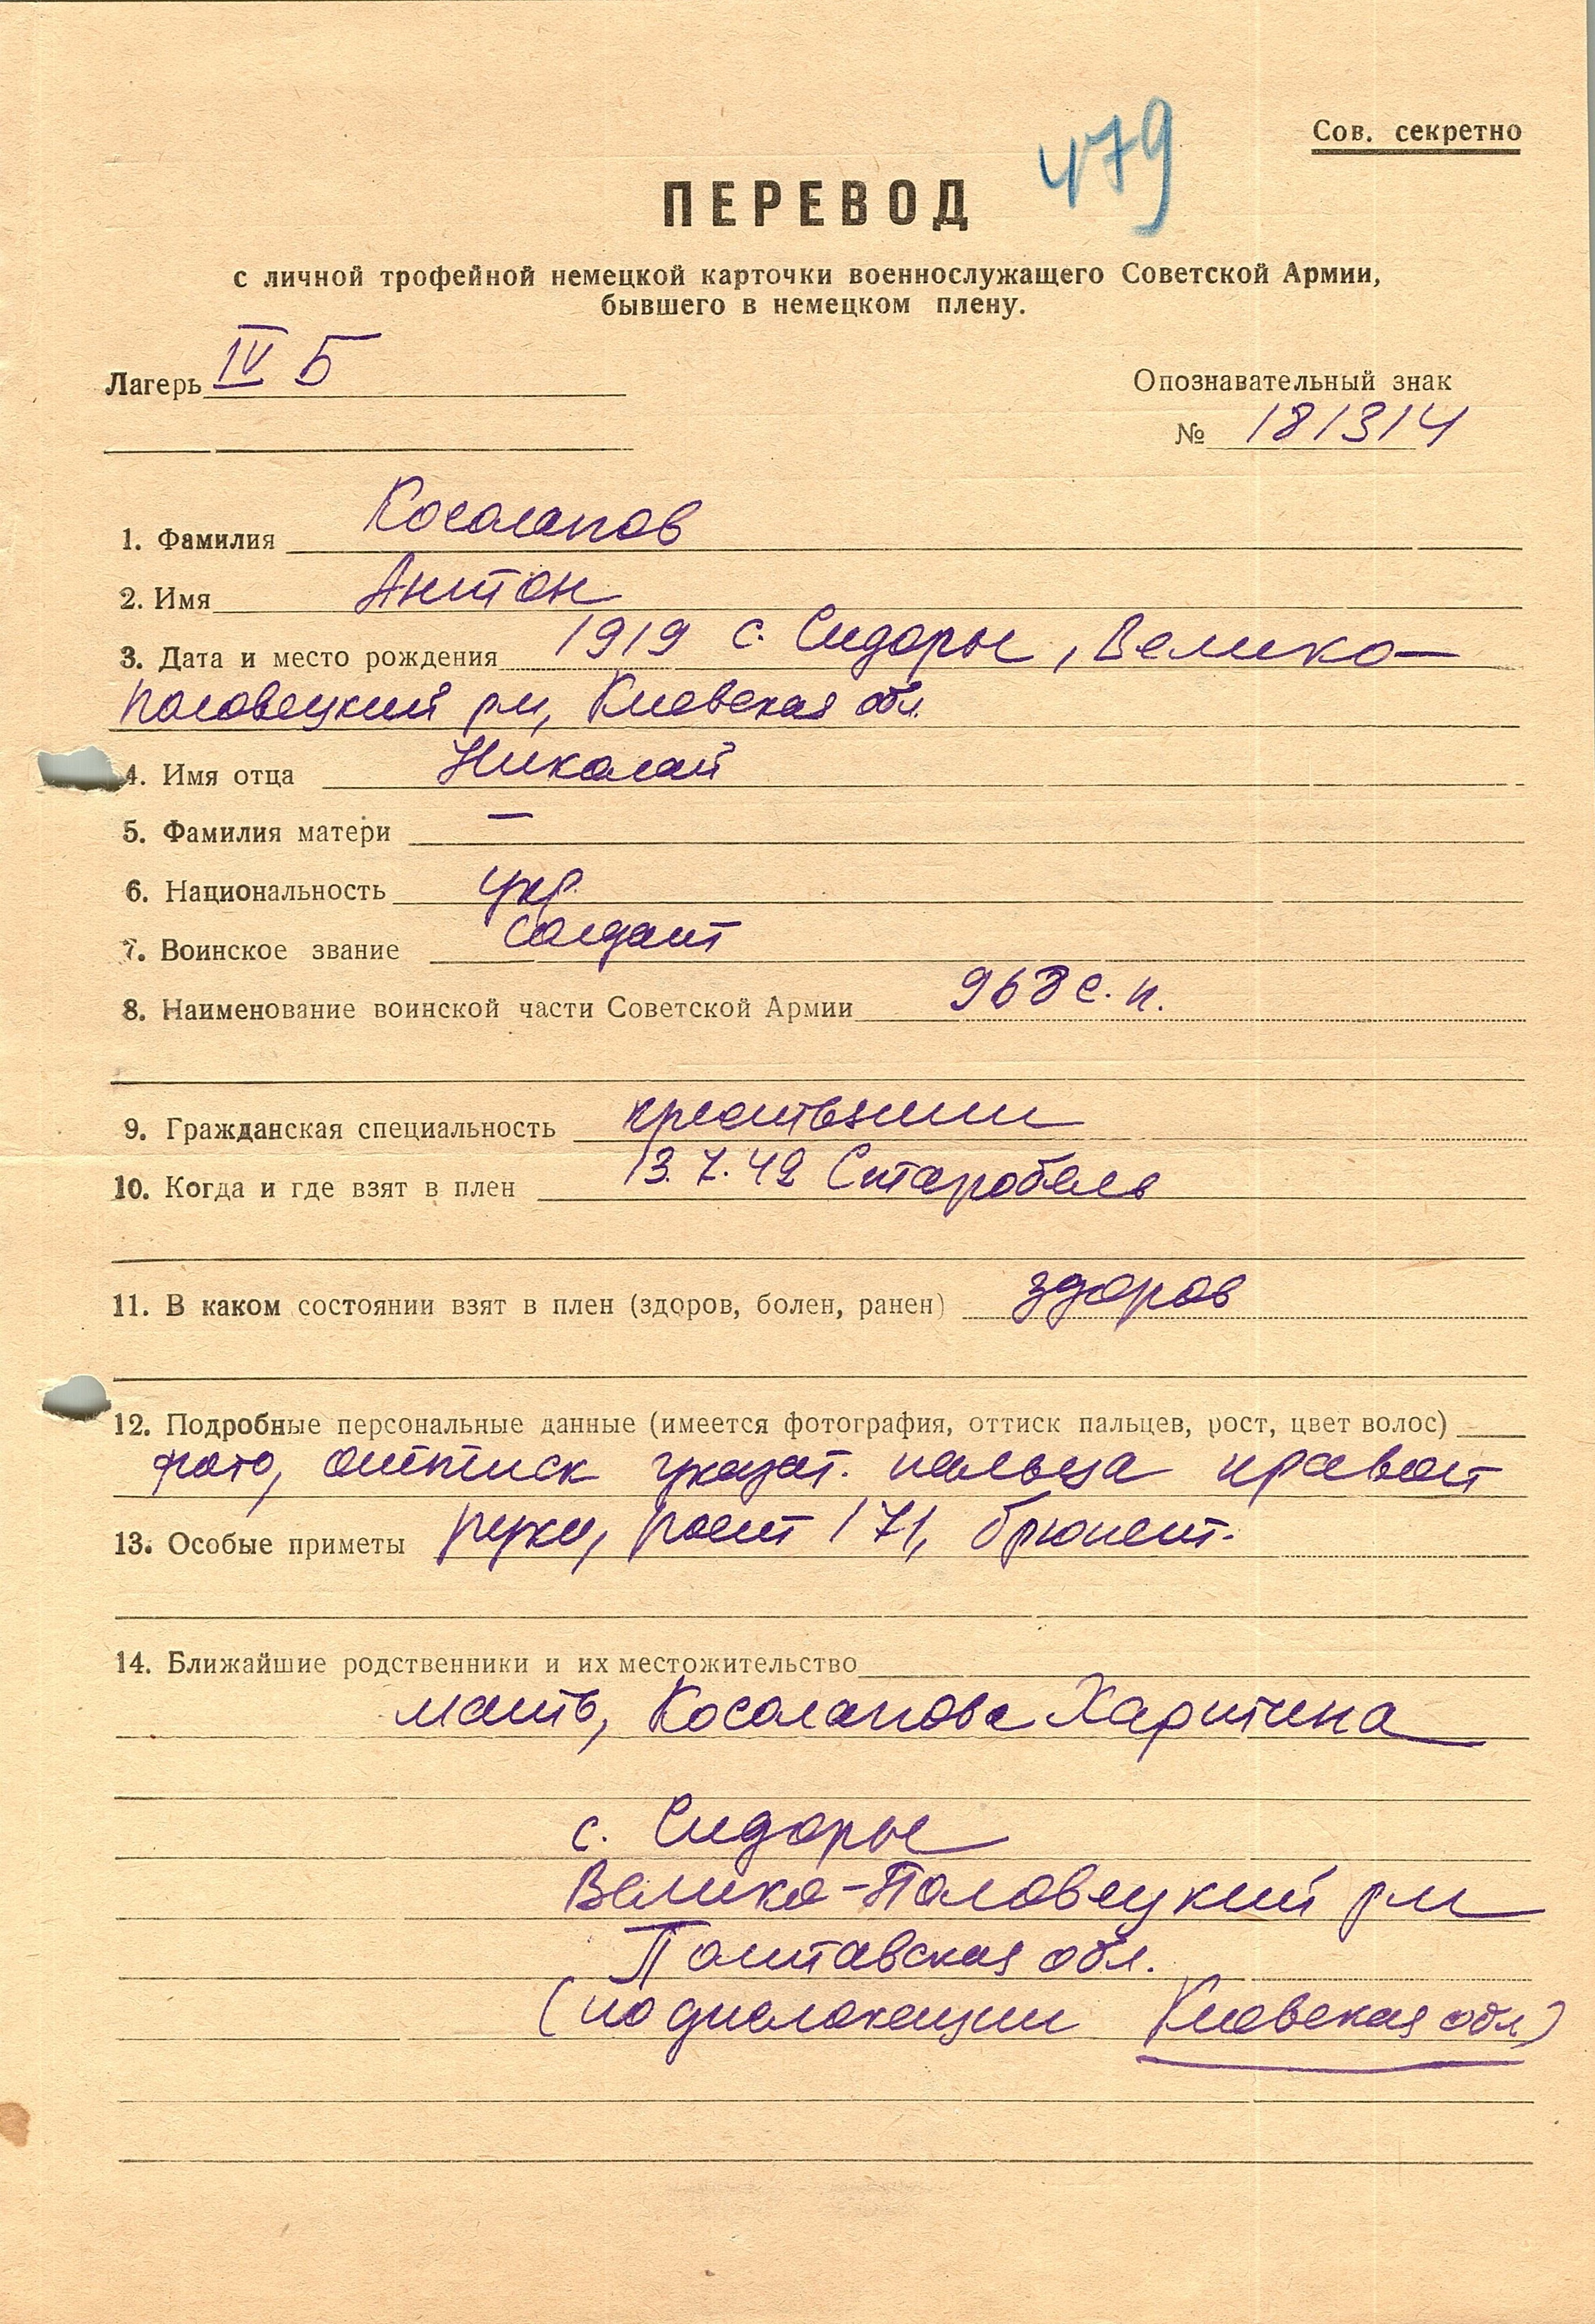 479
Сов. секретно
ПЕРЕВОД
с личной трофейной немецкой карточки военнослужащего Советской Армии,
бывшего в немецком плену.
Лагерь IV Б
Опознавательный знак
№ 181314
1. Фамилия Косолапов
2. Имя Антон
3. Дата и место рождения 1919 с. Сидоры, Велико-
половецкий р-н, Киевская обл.
4. Имя отца Николай
5. Фамилия матери —
6. Национальность укр.
7. Воинское звание солдат
8. Наименование воинской части Советской Армии 968 с. п.
9. Гражданская специальность крестьянин
10. Когда и где взят в плен 13.7.42 Старобель
11. В каком состоянии взят в плен (здоров, болен, ранен) здоров
12. Подробные персональные данные (имеется фотография, оттиск пальцев, рост, цвет волос)
фото, оттиск указат. пальца правой
13. Особые приметы руки, рост 171, брюнет.
14. Ближайшие родственники и их местожительство
мать, Косолапова Харитина
с. Сидоры
Велико-Половецкий р-н
Полтавская обл.
(по дислокации Киевская обл)